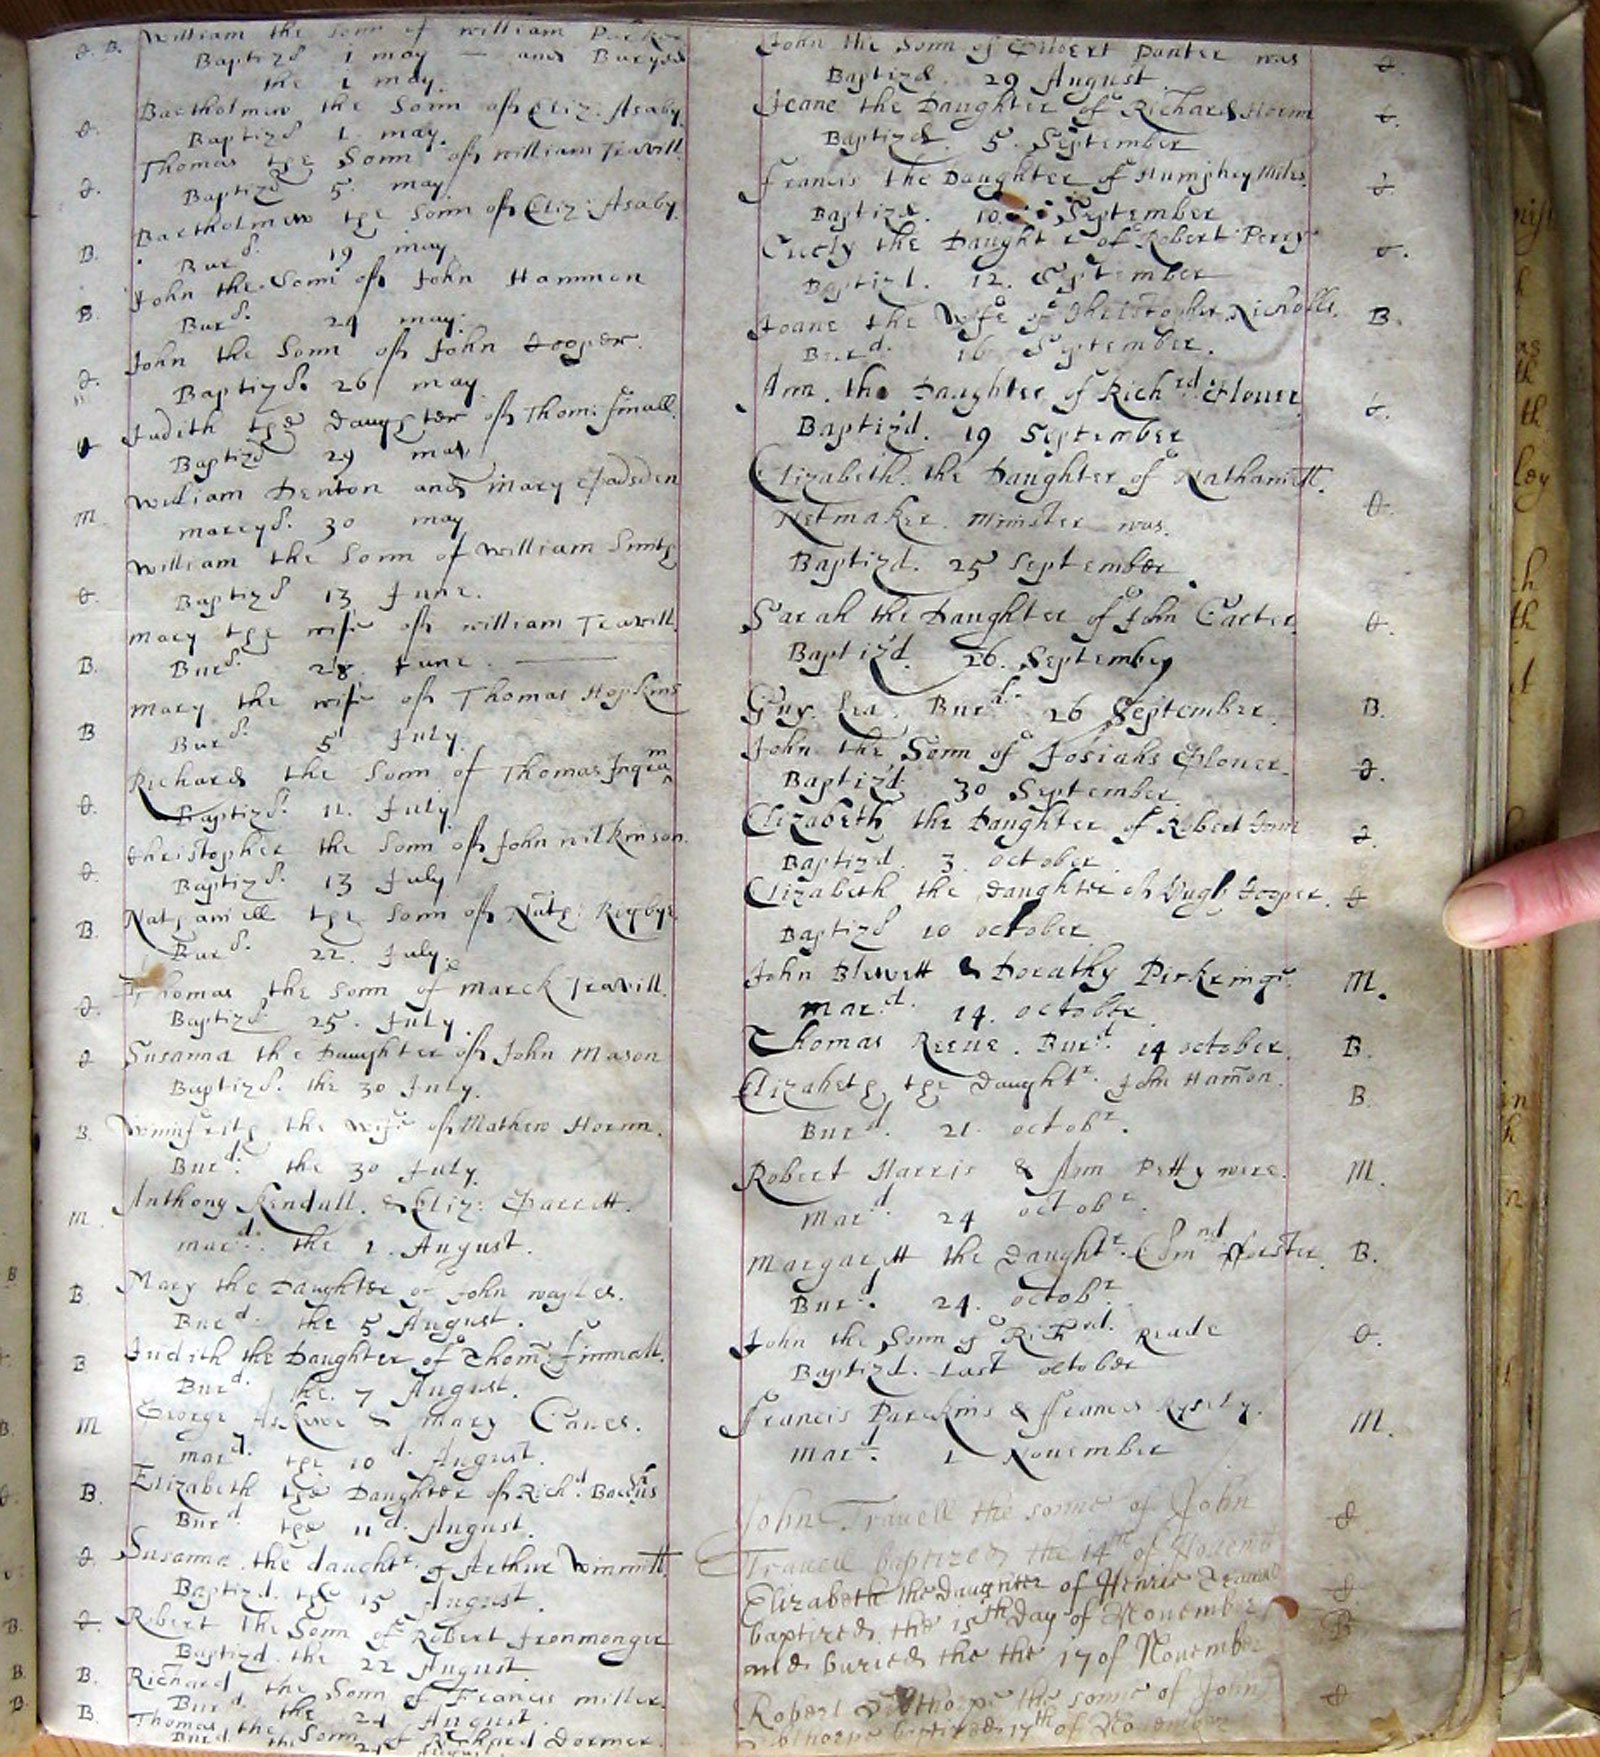 William the Sonn of William Parker
Baptizd 1 may — and Buryed
the 1 may.
Bartholmew the Sonn of Eliz: Asaby.
Baptizd 1. may.
Thomas the Sonn of william Travill.
Baptizd 5. may.
Bartholmew the Sonn of Eliz: Asaby.
B. Burd. 19 may
John the Sonn of John Hammon
B. Burd. 24 may.
John the Sonn of John Hooper.
Baptizd. 26 may
Judith the Daughter of Thom: Small.
Baptizd 29 may
William Denton and Mary Gadsden
m. maryd. 30 may
William the Sonn of William Smith
Baptizd 13 June.
Mary the wife of William Travill.
B. Burd. 28. June.
Mary the wife of Thomas Hopkins
B Burd. 5 July.
Richard the Sonn of Thomas Ingram
Baptizd. 11. July.
Christopher the Sonn of John wilkinson.
Baptizd. 13 July
Nathaniell the Sonn of Nath: Rigbye
B. Burd. 22. July.
Thomas the Sonn of Marck Travill.
Baptizd 25. July.
Susanna the Daughter of John Mason
Baptizd. the 30 July.
B. Winnifrith the Wife of Mathew Hornn.
Burd: the 30 July.
Anthony Kendall. & Eliz: Garrett.
m. mard: the 1. August.
B. Mary the Daughter of John waples.
Burd: the 5 August.
B Judith the Daughter of Thom: Simmall.
Burd. the. 7 August.
m George Askwe & mary Caues.
mard. the 10d. August.
B. Elizabeth the Daughter of Richd. Baccus
Burd the 11d. August.
Susanna the daughtr. of Arthur Wimmitt
Baptizd. the 15 August.
Robert the Sonn of Robert Ironmonger
Baptizd. the 22 August
B. Richard the Sonn of Francis miller.
Burd. the 24 August.
B. Thomas the Sonn of Richard Dormer.
Burd. the
John the Sonn of Gilbert Panter was
Baptizd. 29 August.
Jeane the Daughter of Richard Hornn
Baptizd. 5. September
Francis the Daughter of Humphry Miles.
Baptizd. 10. September
Cicely the Daughter of Robert Perry
Baptizd. 12. September
Joane the Wife of Christopher Nicholls. B.
Burd. 16 September.
Ann. the Daughter of Richrd. Glouer
Baptizd. 19 September
Elizabeth. the Daughter of Nathaniell.
Netmaker. Minister was.
Baptizd. 25 September.
Sarah the Daughter of John Carter.
Baptizd. 26. September
Guy. Lea. Burd. 26 September. B.
John the Sonn of Josiahs Glouer.
Baptizd. 30 September.
Elizabeth the Daughter of Robert
Baptizd. 3 october.
Elizabeth the Daughter of Hugh Hooper.
Baptizd 10 october
John Blewett & Dorathy Pirkringe. M.
mard. 14. october.
Thomas Reeue. Burd. 14 october. B.
Elizabeth the Daughtr. John Hamon. B.
Burd. 21. octobr.
Robert Harris & Ann Petty were. M.
Mard. 24 octobr.
Margarett the Daughtr. Edmnd fforster. B.
Burd. 24. octobr.
John the Sonn of Richrd. Reade
Baptizd. Last october
Francis Parckins & ffrances Rysely. M.
Mard. 1 November
John Travell the sonne of John
Travell baptized the 14th of Novemb
Elizabeth the daughter of Henrie
baptized the 15th Day of November
and buried the the 17 of November B
Robert the sonne of John
baptized 17th of November